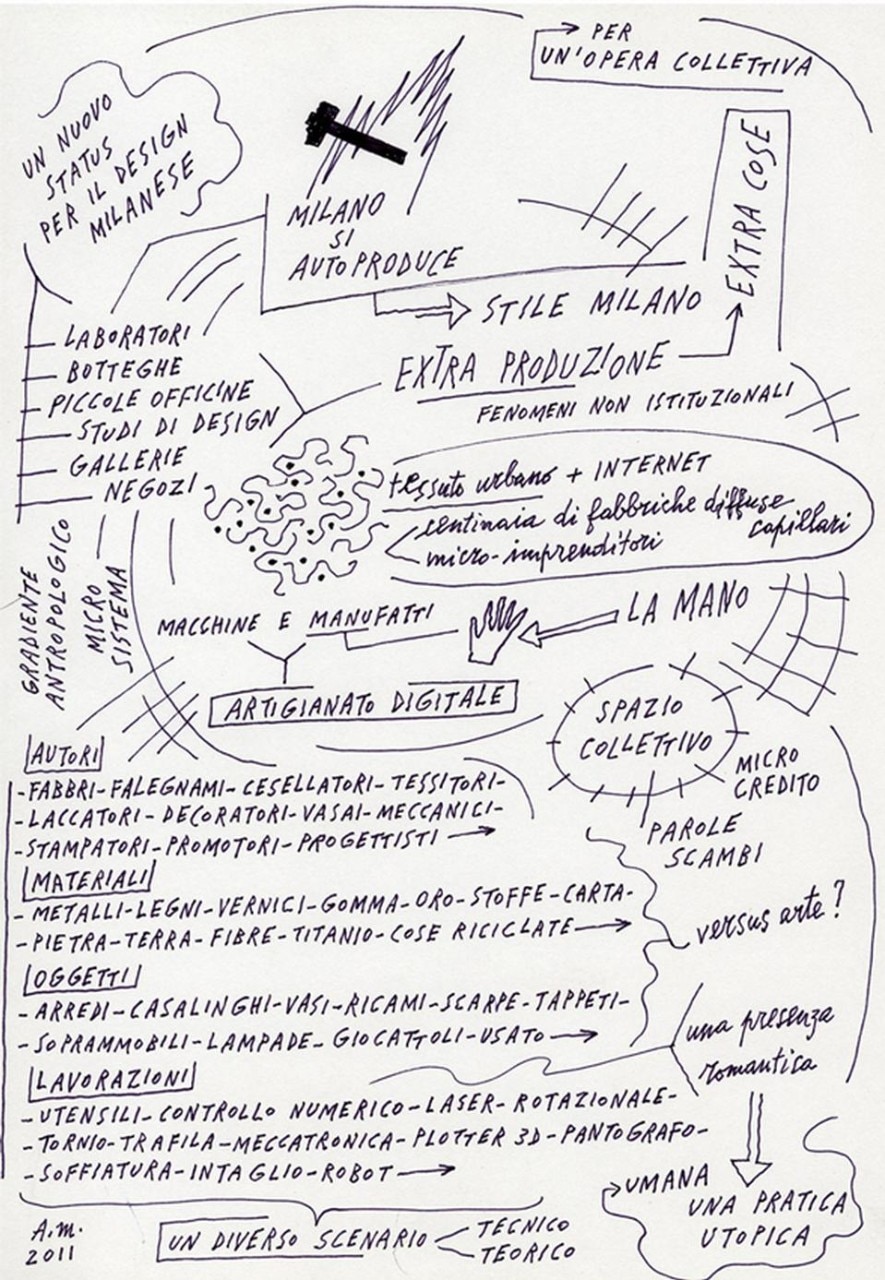 PER
UN'OPERA COLLETTIVA
UN NUOVO
STATUS
PER IL DESIGN
MILANESE
MILANO
SI
AUTOPRODUCE
EXTRA COSE
STILE MILANO
EXTRA PRODUZIONE
FENOMENI NON ISTITUZIONALI
LABORATORI
BOTTEGHE
PICCOLE OFFICINE
STUDI DI DESIGN
GALLERIE
NEGOZI
tessuto urbano + INTERNET
centinaia di fabbriche diffuse
capillari
micro-imprenditori
GRADIENTE
ANTROPOLOGICO
MICRO
SISTEMA
MACCHINE E MANUFATTI
LA MANO
ARTIGIANATO DIGITALE
SPAZIO
COLLETTIVO
MICRO
CREDITO
PAROLE
SCAMBI
AUTORI
-FABBRI-FALEGNAMI-CESELLATORI-TESSITORI-
-LACCATORI-DECORATORI-VASAI-MECCANICI-
-STAMPATORI-PROMOTORI-PROGETTISTI
MATERIALI
-METALLI-LEGNI-VERNICI-GOMMA-ORO-STOFFE-CARTA-
-PIETRA-TERRA-FIBRE-TITANIO-COSE RICICLATE
versus arte?
OGGETTI
-ARREDI-CASALINGHI-VASI-RICAMI-SCARPE-TAPPETI-
-SOPRAMMOBILI-LAMPADE-GIOCATTOLI-USATO
una presenza
romantica
LAVORAZIONI
-UTENSILI-CONTROLLO NUMERICO-LASER-ROTAZIONALE-
-TORNIO-TRAFILA-MECCATRONICA-PLOTTER 3D-PANTOGRAFO-
-SOFFIATURA-INTAGLIO-ROBOT
UMANA
UNA PRATICA
UTOPICA
A.M.
2011
UN DIVERSO SCENARIO
TECNICO
TEORICO